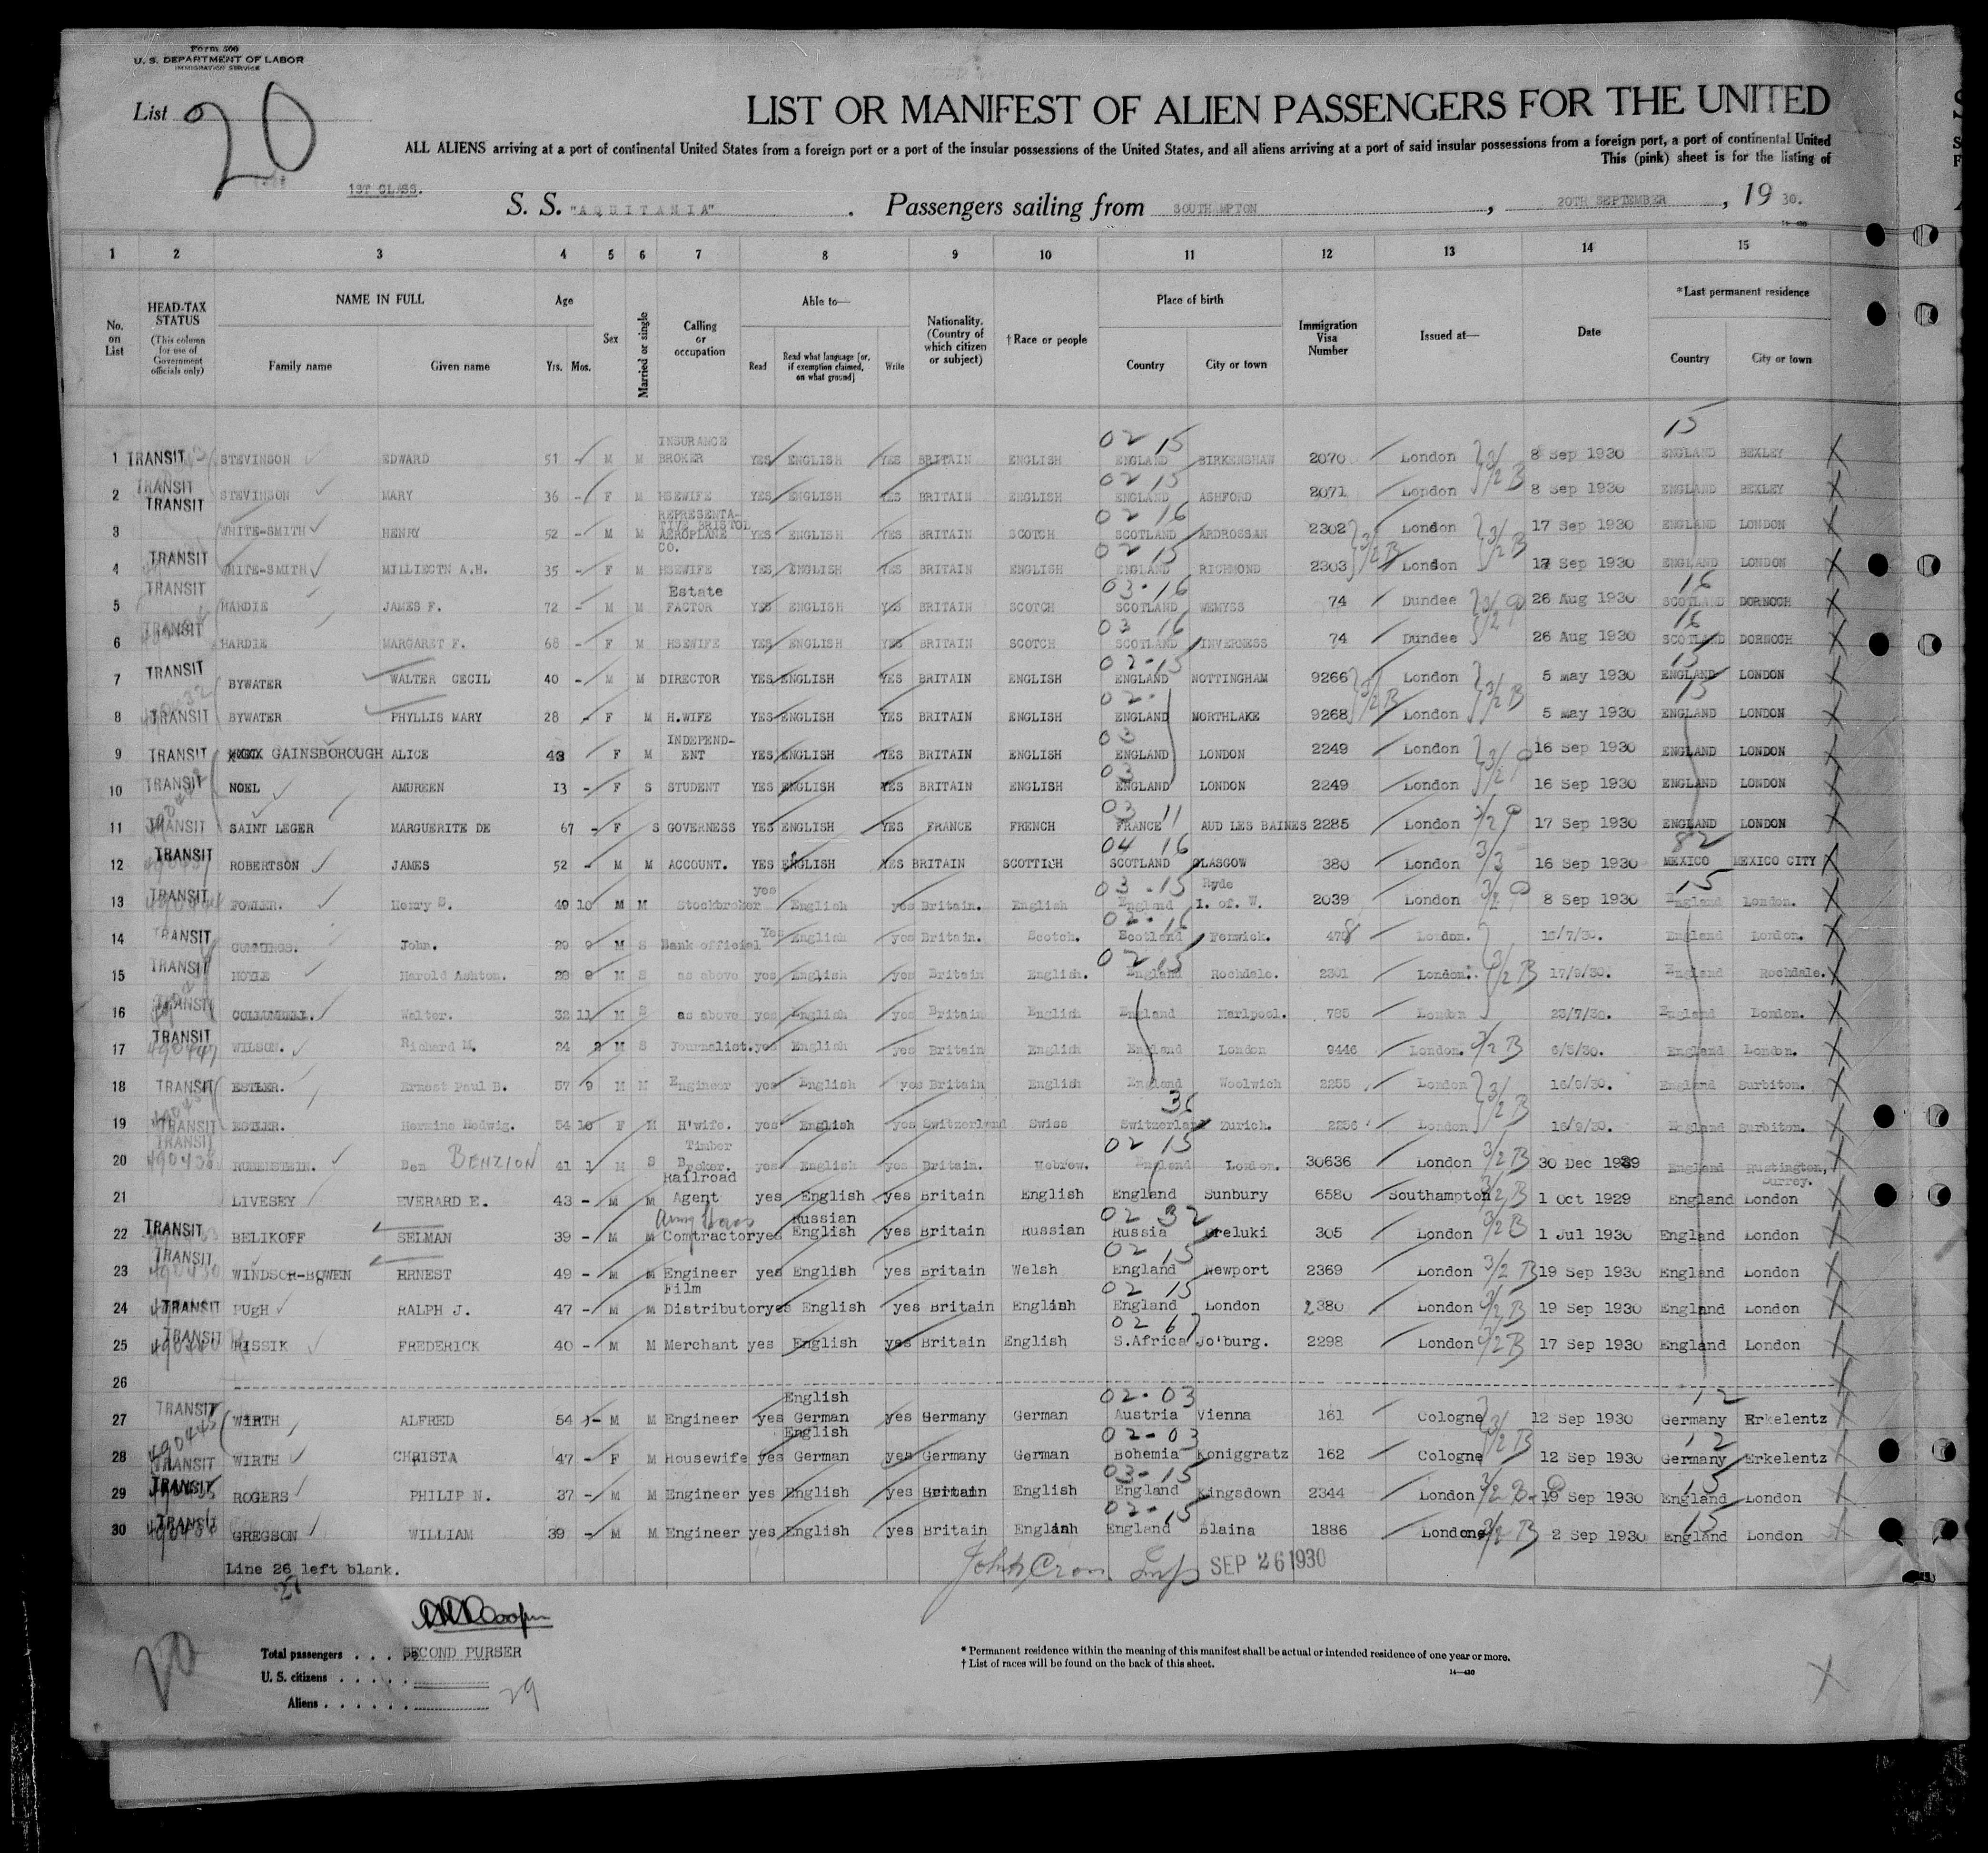 Form 500
U. S. DEPARTMENT OF LABOR
IMMIGRATION SERVICE
List 20
LIST OR MANIFEST OF ALIEN PASSENGERS FOR THE UNITED
ALL ALIENS arriving at a port of continental United States from a foreign port or a port of the insular possessions of the United States, and all aliens arriving at a port of said insular possessions from a foreign port, a port of continental United
This (pink) sheet is for the listing of
1ST CLASS.
S. S. "AQUITANIA" . Passengers sailing from SOUTHAMPTON , 20TH SEPTEMBER , 19 30.
1 2 3 4 5 6 7 8 9 10 11 12 13 14 15
No. on List
HEAD-TAX STATUS (This column for use of Government officials only)
NAME IN FULL Family name Given name
Age Yrs. Mos.
Sex
Married or single
Calling or occupation
Able to— Read Read what language [or, if exemption claimed, on what ground] Write
Nationality. (Country of which citizen or subject)
† Race or people
Place of birth Country City or town
Immigration Visa Number
Issued at—
Date
*Last permanent residence Country City or town
1 TRANSIT STEVINSON EDWARD 51 - M M INSURANCE BROKER YES ENGLISH YES BRITAIN ENGLISH 02 15 ENGLAND BIRKENSHAW 2070 London 3/2 B 8 Sep 1930 15 ENGLAND BEXLEY X
2 TRANSIT STEVINSON MARY 36 - F M HSEWIFE YES ENGLISH YES BRITAIN ENGLISH 02 15 ENGLAND ASHFORD 2071 London 8 Sep 1930 ENGLAND BEXLEY X
3 TRANSIT WHITE-SMITH HENRY 52 - M M REPRESENTA-TIVE BRISTOL AEROPLANE CO. YES ENGLISH YES BRITAIN SCOTCH 02 16 SCOTLAND ARDROSSAN 2302 London 3/2 B 17 Sep 1930 ENGLAND LONDON X
4 TRANSIT WHITE-SMITH MILLIECTN A.H. 35 - F M HSEWIFE YES ENGLISH YES BRITAIN ENGLISH 02 15 ENGLAND RICHMOND 2303 3/2 B London 17 Sep 1930 ENGLAND LONDON X
5 TRANSIT HARDIE JAMES F. 72 - M M Estate FACTOR YES ENGLISH YES BRITAIN SCOTCH 03-16 SCOTLAND WEMYSS 74 Dundee 3/2 P 26 Aug 1930 16 SCOTLAND DORNOCH X
6 TRANSIT HARDIE MARGARET F. 68 - F M HSEWIFE YES ENGLISH YES BRITAIN SCOTCH 03 16 SCOTLAND INVERNESS 74 Dundee 26 Aug 1930 16 SCOTLAND DORNOCH X
7 TRANSIT BYWATER WALTER CECIL 40 - M M DIRECTOR YES ENGLISH YES BRITAIN ENGLISH 02-15 ENGLAND NOTTINGHAM 9266 London 3/2 B 5 May 1930 15 ENGLAND LONDON X
8 TRANSIT BYWATER PHYLLIS MARY 28 - F M H.WIFE YES ENGLISH YES BRITAIN ENGLISH 02- ENGLAND MORTHLAKE 9268 3/2 B London 5 May 1930 15 ENGLAND LONDON X
9 TRANSIT GAINSBOROUGH ALICE 43 F M INDEPEND-ENT YES ENGLISH YES BRITAIN ENGLISH 03 ENGLAND LONDON 2249 London 3/2 P 16 Sep 1930 ENGLAND LONDON X
10 TRANSIT NOEL AMUREEN 13 - F S STUDENT YES ENGLISH YES BRITAIN ENGLISH 03 ENGLAND LONDON 2249 London 16 Sep 1930 ENGLAND LONDON X
11 TRANSIT SAINT LEGER MARGUERITE DE 67 - F S GOVERNESS YES ENGLISH YES FRANCE FRENCH 03 11 FRANCE AUD LES BAINES 2285 London 3/2 P 17 Sep 1930 ENGLAND LONDON X
12 TRANSIT ROBERTSON JAMES 52 - M M ACCOUNT. YES ENGLISH YES BRITAIN SCOTTICH 04 16 SCOTLAND GLASGOW 380 London 3/3 16 Sep 1930 82 MEXICO MEXICO CITY X
13 TRANSIT FOWLER. Henry S. 49 10 M M Stockbroker yes English yes Britain. English 03-15 England Ryde I. of. W. 2039 London 3/2 P 8 Sep 1930 15 England London. X
14 TRANSIT CUMMINGS. John. 29 9 M S Bank official Yes English yes Britain. Scotch. 02-16 Scotland Fenwick. 478 London. 16/7/30. England London. X
15 TRANSIT HOYLE Harold Ashton. 29 9 M S as above yes English yes Britain English. 02 15 England Rochdale. 2301 London. 3/2 B 17/9/30. England Rochdale. X
16 TRANSIT COLLUMBELL. Walter. 32 11 M S as above yes English yes Britain English England Marlpool. 785 London 23/7/30. England London. X
17 TRANSIT WILSON. Richard M. 24 2 M S Journalist. yes English yes Britain English England London 9446 London. 3/2 B 6/5/30. England London. X
18 TRANSIT ESTLER. Ernest Paul B. 57 9 M M Engineer yes English yes Britain English England Woolwich 2255 London 3/2 B 16/9/30. England Surbiton. X
19 TRANSIT ESTLER. Hermine Hedwig. 54 10 F M H'wife. yes English yes Switzerland Swiss 36 Switzerland Zurich. 2256 London 16/9/30. England Surbiton. X
20 TRANSIT 490438 RUBENSTEIN. Ben BENZION 41 1 M S Timber Broker. yes English yes Britain. Hebrew. 02 15 England London. 30636 London 3/2 B 30 Dec 1929 England Rustington, Surrey. X
21 LIVESEY EVERARD E. 43 - M M Railroad Agent yes English yes Britain English England Sunbury 6580 Southampton 3/2 B 1 Oct 1929 England London X
22 TRANSIT BELIKOFF SELMAN 39 - M M Contractor yes Russian English yes Britain Russian 02 32 Russia Oreluki 305 London 3/2 B 1 Jul 1930 England London X
23 TRANSIT WINDSOR-BOWEN ERNEST 49 - M M Engineer yes English yes Britain Welsh 02 15 England Newport 2369 London 3/2 B 19 Sep 1930 England London X
24 TRANSIT PUgH RALPH J. 47 - M M Film Distributor yes English yes Britain English 02 15 England London 2380 London 3/2 B 19 Sep 1930 England London X
25 TRANSIT RISSIK FREDERICK 40 - M M Merchant yes English yes Britain English 02 67 S.Africa Jo'burg. 2298 London 3/2 B 17 Sep 1930 England London X
26 X
27 TRANSIT WIRTH ALFRED 54 - M M Engineer yes English German yes Germany German 02-03 Austria Vienna 161 Cologne 3/2 B 12 Sep 1930 12 Germany Erkelentz X
28 490445 TRANSIT WIRTH CHRISTA 47 - F M Housewife yes English German yes Germany German 02-03 Bohemia Koniggratz 162 Cologne 12 Sep 1930 12 Germany Erkelentz X
29 TRANSIT ROGERS PHILIP N. 37 - M M Engineer yes English yes Britain English 03-15 England Kingsdown 2344 London 3/2 B-P 19 Sep 1930 15 England London X
30 TRANSIT GREGSON WILLIAM 39 - M M Engineer yes English yes Britain English 02-15 England Blaina 1886 London 3/2 B 2 Sep 1930 15 England London X
Line 26 left blank.
SEP 26 1930
29
20
Total passengers . . . . SECOND PURSER
U. S. citizens . . . . .
Aliens . . . . . . 29
* Permanent residence within the meaning of this manifest shall be actual or intended residence of one year or more.
† List of races will be found on the back of this sheet.
14—430
X